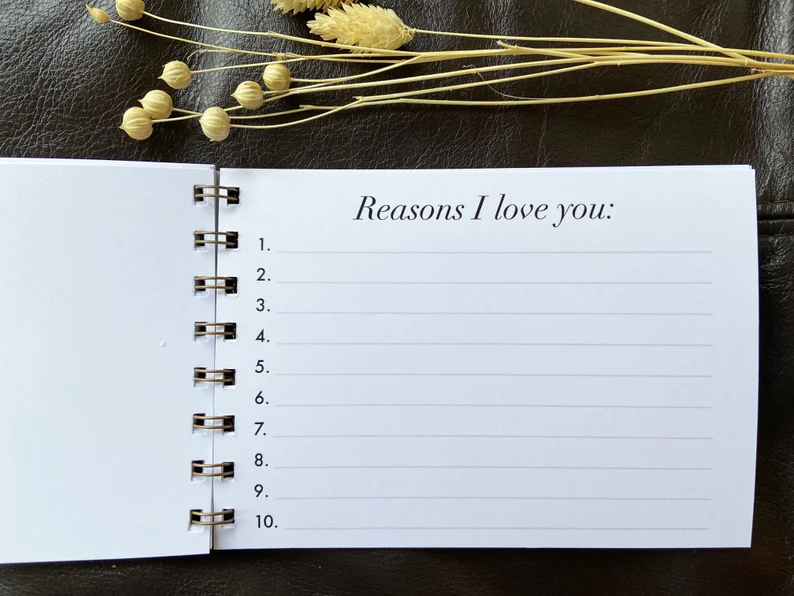 Reasons I love you:
1.
2.
3.
4.
5.
6.
7.
8.
9.
10.